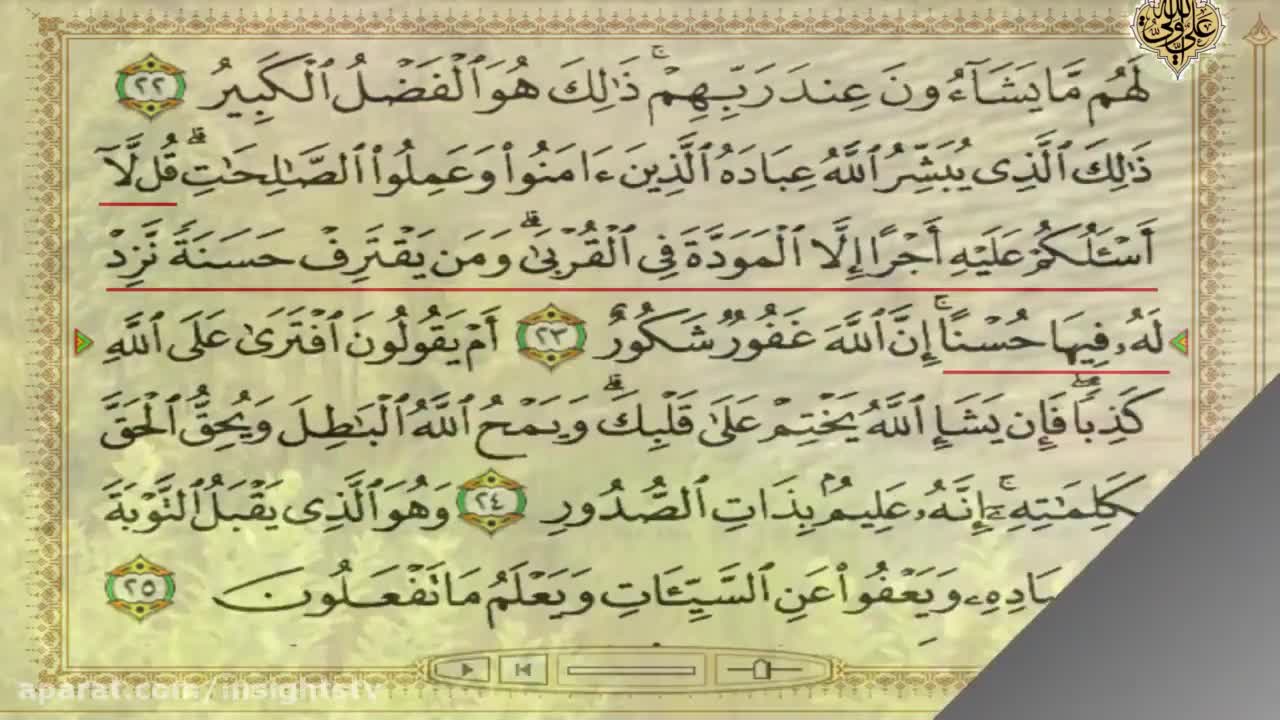 لَهُم مَّا يَشَآءُونَ عِندَ رَبِّهِمْ ۚ ذَٰلِكَ هُوَ ٱلْفَضْلُ ٱلْكَبِيرُ ٢٢
ذَٰلِكَ ٱلَّذِى يُبَشِّرُ ٱللَّهُ عِبَادَهُ ٱلَّذِينَ ءَامَنُوا۟ وَعَمِلُوا۟ ٱلصَّـٰلِحَـٰتِ ۗ قُل لَّآ
أَسْـَٔلُكُمْ عَلَيْهِ أَجْرًا إِلَّا ٱلْمَوَدَّةَ فِى ٱلْقُرْبَىٰ ۗ وَمَن يَقْتَرِفْ حَسَنَةً نَّزِدْ
لَهُۥ فِيهَا حُسْنًا ۚ إِنَّ ٱللَّهَ غَفُورٌ شَكُورٌ ٢٣ أَمْ يَقُولُونَ ٱفْتَرَىٰ عَلَى ٱللَّهِ
كَذِبًا ۖ فَإِن يَشَإِ ٱللَّهُ يَخْتِمْ عَلَىٰ قَلْبِكَ ۗ وَيَمْحُ ٱللَّهُ ٱلْبَـٰطِلَ وَيُحِقُّ ٱلْحَقَّ
بِكَلِمَـٰتِهِۦٓ ۚ إِنَّهُۥ عَلِيمٌۢ بِذَاتِ ٱلصُّدُورِ ٢٤ وَهُوَ ٱلَّذِى يَقْبَلُ ٱلتَّوْبَةَ
وَيَعْفُوا۟ عَنِ ٱلسَّيِّـَٔاتِ وَيَعْلَمُ مَا تَفْعَلُونَ ٢٥
aparat.com/insightstv